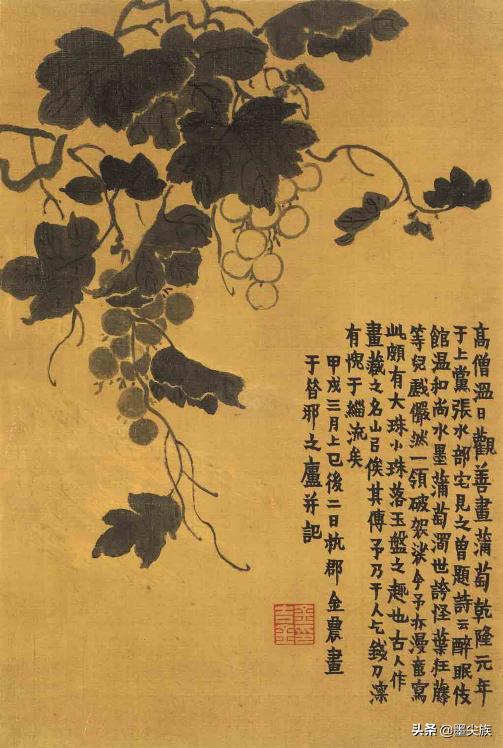 高僧溫日觀善畫蒲萄乾隆元年
于上黨張水部宅見之曾題詩云醉眠伎
館溫和尚水墨蒲萄濁世誇怪葉狂藤
等兒戲儼然一領破袈裟今予亦漫畫寫
此頗有大珠小珠落玉盤之趣也古人作
畫藏之名山㠯俟其傳予乃干人乞錢刀深
有愧于緇流矣
甲戌三月上巳後二日杭郡金農畫
于昝邪之廬并記
头条@墨尖族